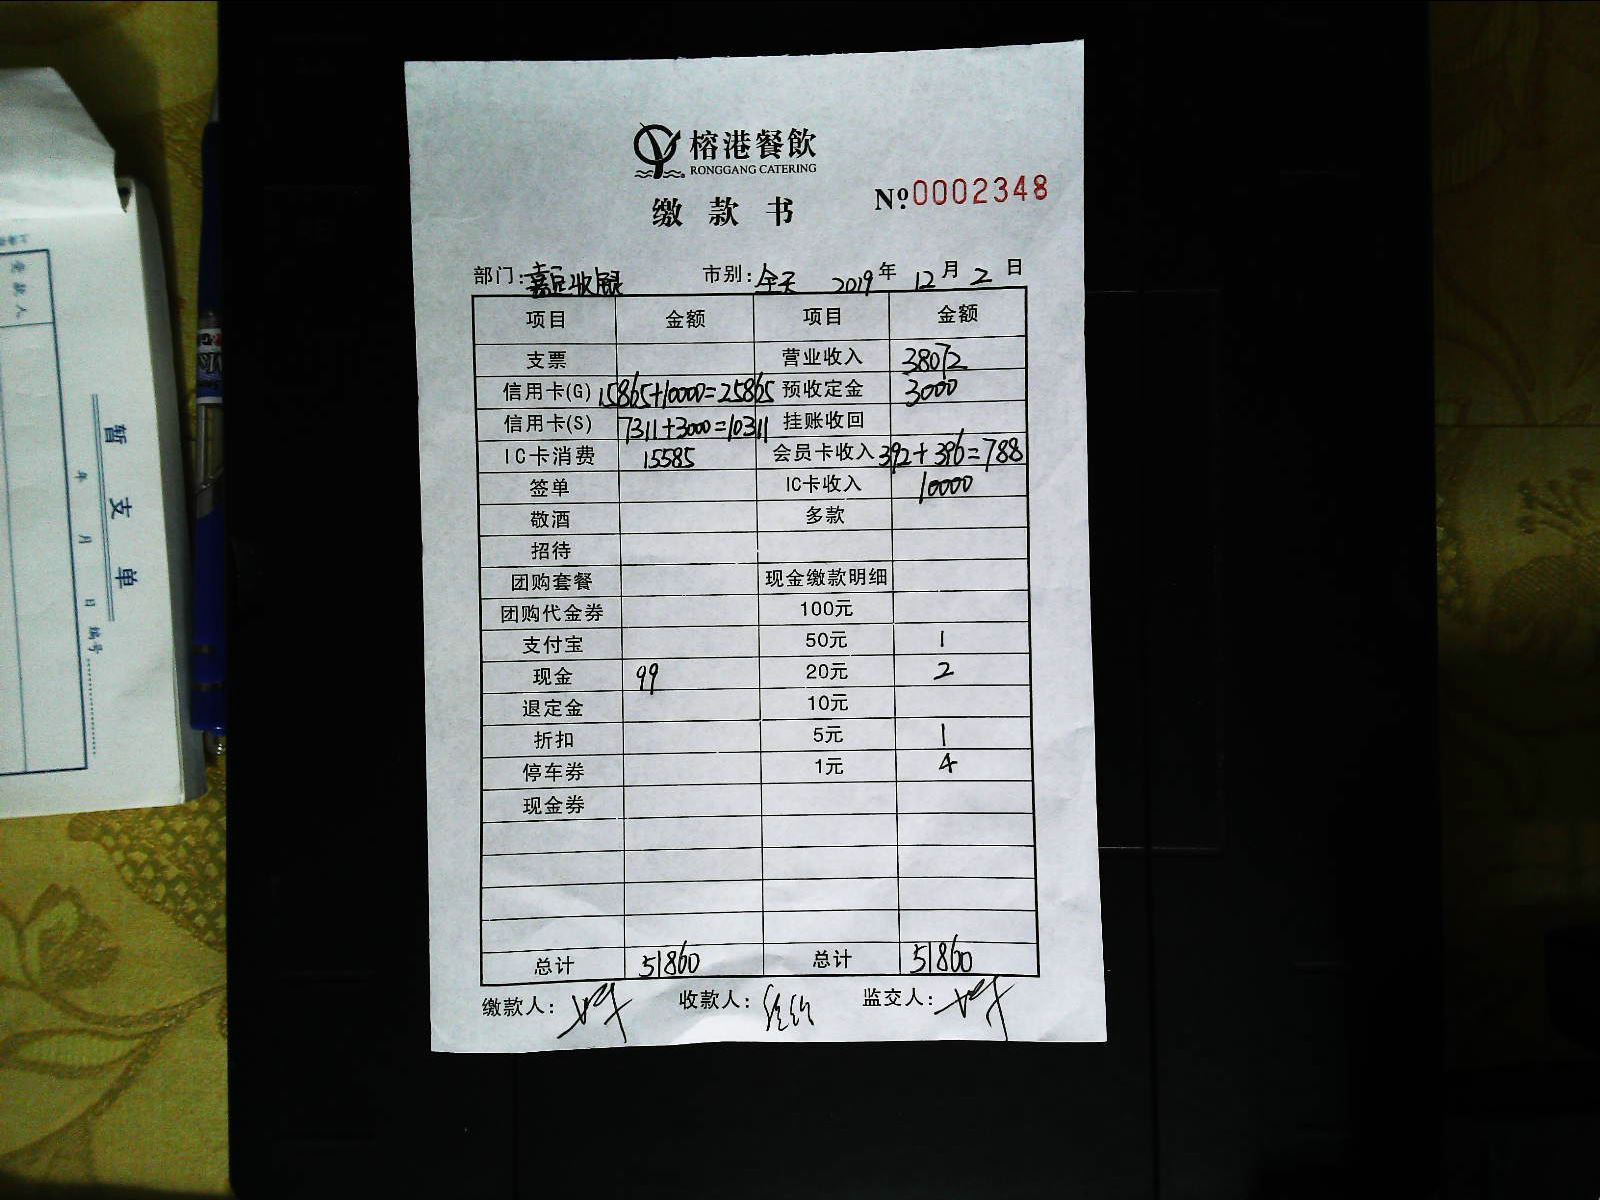 榕港餐飲
RONGGANG CATERING
缴款书
Nº 0002348
部门: 嘉定收银 市别: 全天 2019年12月2日
项目 金额 项目 金额
支票 营业收入 38072
信用卡(G) 15865+10000=25865 预收定金 3000
信用卡(S) 7311+3000=10311 挂账收回
IC卡消费 15585 会员卡收入 392+396=788
签单 IC卡收入 10000
敬酒 多款
招待
团购套餐 现金缴款明细
团购代金券 100元
支付宝 50元 1
现金 99 20元 2
退定金 10元
折扣 5元 1
停车券 1元 4
现金券
总计 51860 总计 51860
缴款人: 收款人: 监交人:
暂支单
年 月 日 编号
金款人